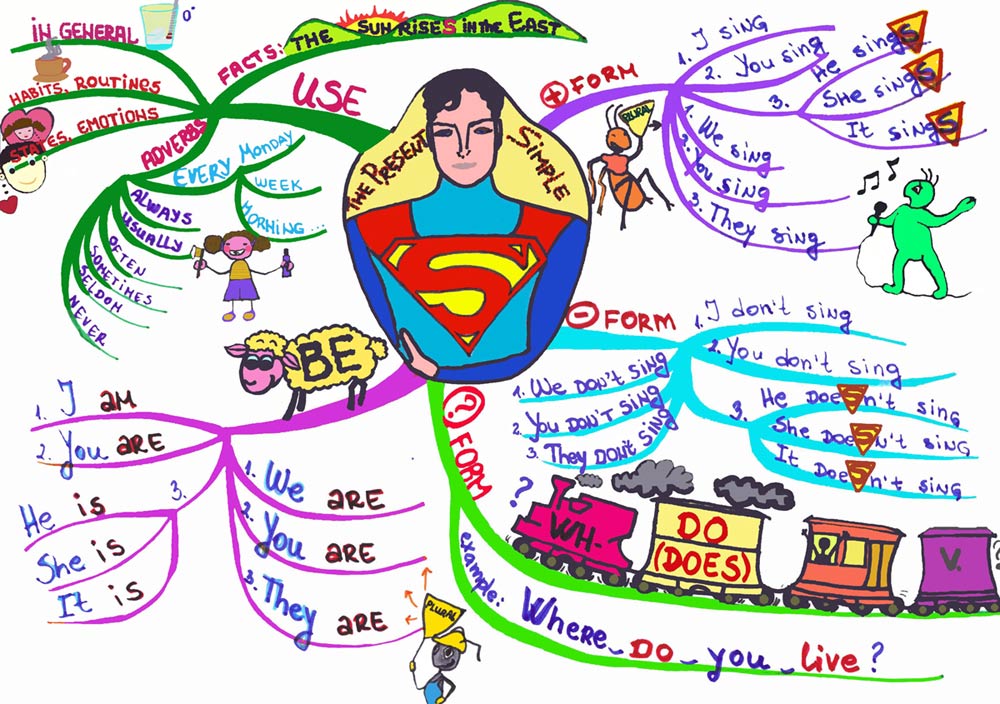 THE PRESENT SIMPLE
S
USE
IN GENERAL
0°
HABITS, ROUTINES
STATES, EMOTIONS
FACTS: THE SUN RISES in the EAST
ADVERBS
EVERY Monday
WEEK
MORNING...
ALWAYS
USUALLY
OFTEN
SOMETIMES
SELDOM
NEVER
+ FORM
1. I sing
2. You sing
3. He singS
She singS
It singS
PLURAL
1. We sing
2. You sing
3. They sing
- FORM
1. I don't sing
2. You don't sing
3. He DoeSn't sing
She DoeSn't sing
It DoeSn't sing
1. We DON'T SING
2. You DON'T SING
3. They DON'T SING
BE
1. I AM
2. You ARE
3.
He is
She is
It is
1. We ARE
2. You ARE
3. They ARE
PLURAL
? FORM
?
WH-
DO
(DOES)
V.
?
example: Where_DO_you_live?